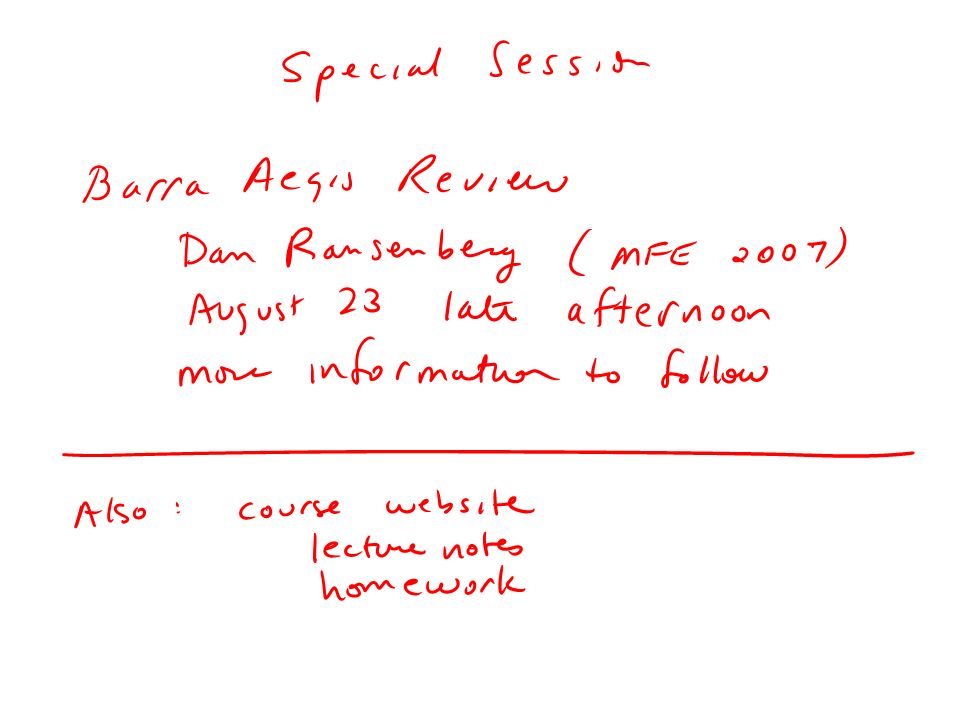 Special Session
Barra Aegis Review
Dan Ransenberg (MFE 2007)
August 23 late afternoon
more information to follow
Also: course website
lecture notes
homework